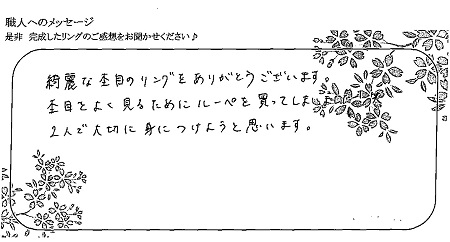 職人へのメッセージ
是非 完成したリングのご感想をお聞かせください♪
綺麗な杢目のリングをありがとうございます。
杢目をよく見るためにルーペを買ってしまいました
2人で大切に身につけようと思います。